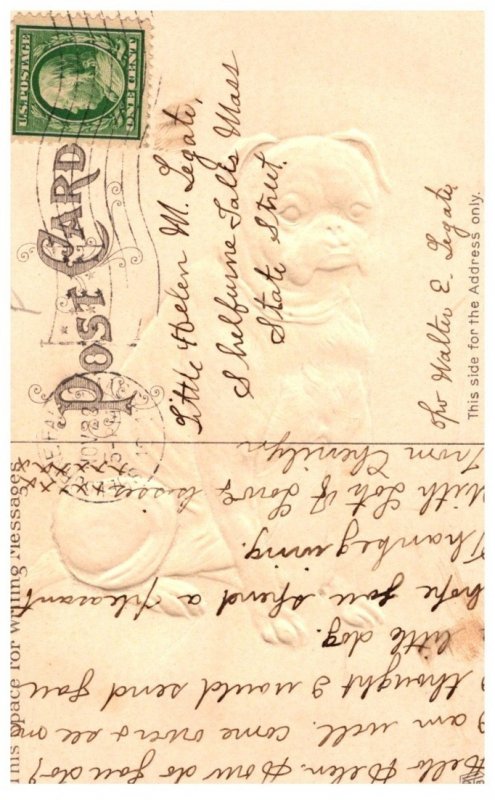 U.S. POSTAGE
ONE CENT
POST CARD
This Space for Writing Messages
This side for the Address only.
Little Helen M. Legate,
Shelburne Falls Mass
State Street.
c/o Walter E. Legate
Hello Helen. How do you do?
I am well. come over & see
I thought I would send you
a little dog.
hope you spend a pleasant
Thanksgiving.
With Lots of Love, kisses
xxxxx
xxxxx
from